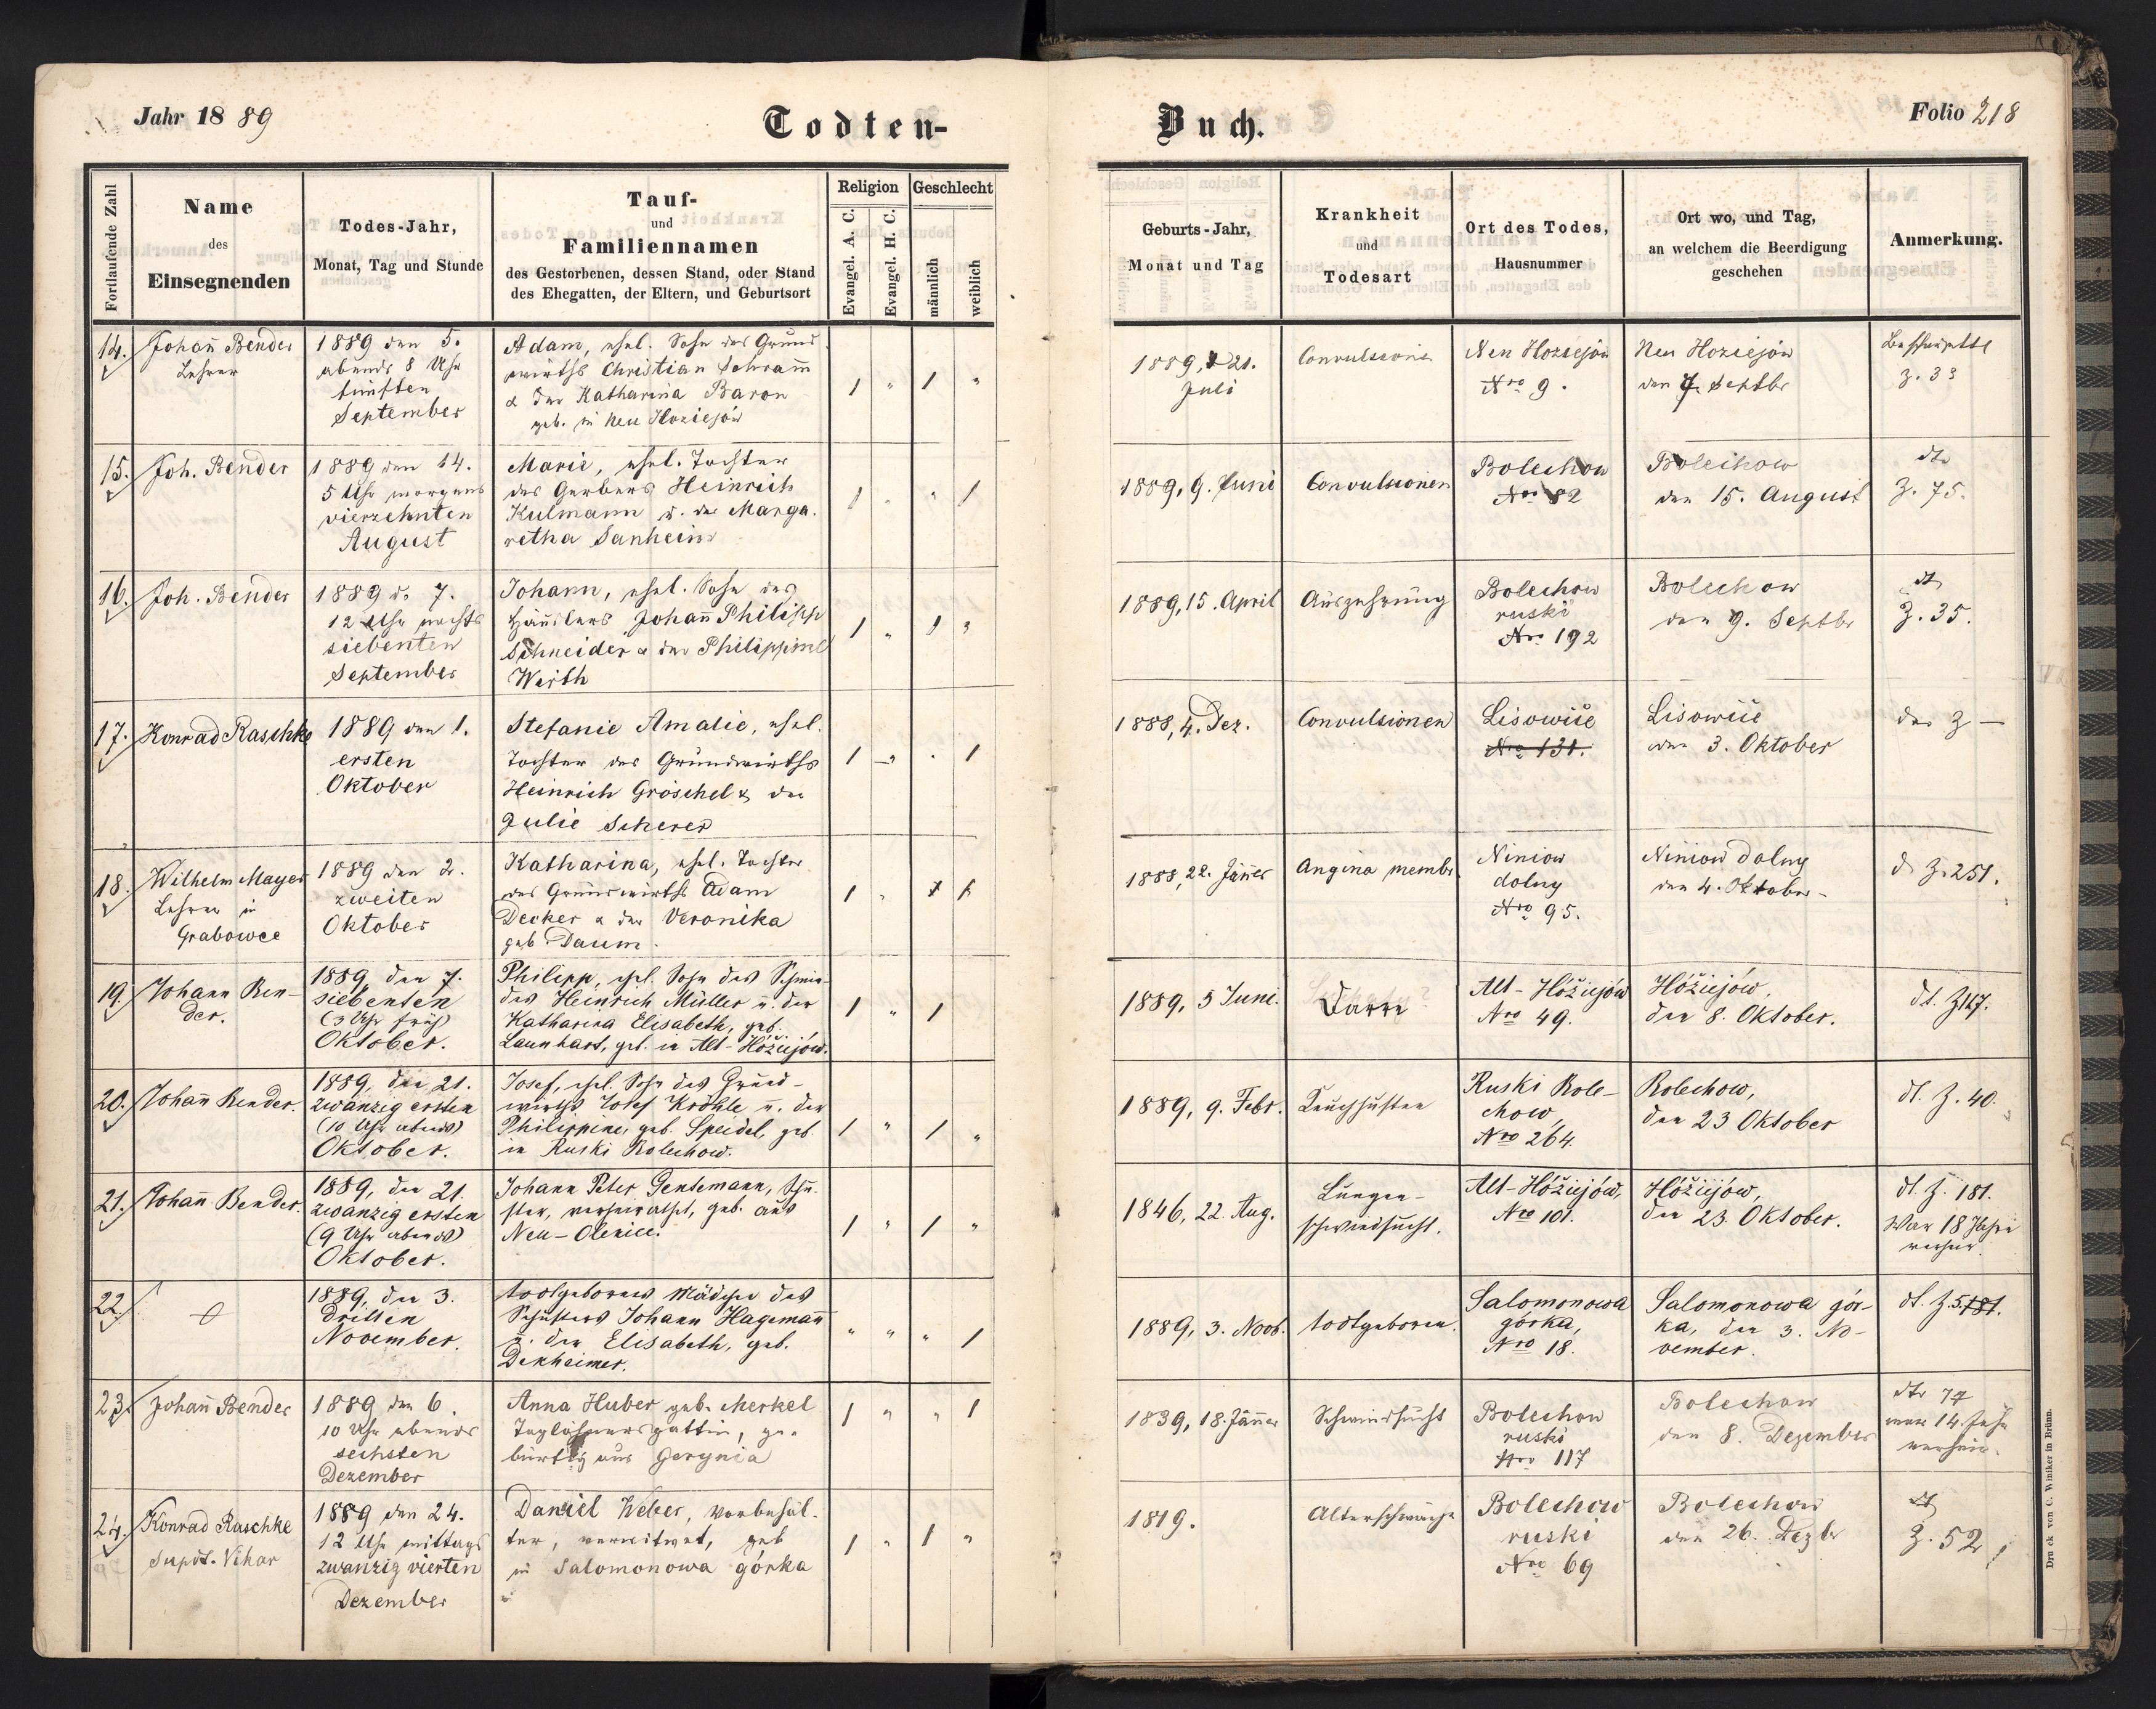 Jahr 1889
Todten-
Buch.
Folio 218
Fortlaufende Zahl
Name
des
Einsegnenden
Todes-Jahr,
Monat, Tag und Stunde
Tauf-
und
Familiennamen
des Gestorbenen, dessen Stand, oder Stand
des Ehegatten, der Eltern, und Geburtsort
Religion
Evangel. A. C.
Evangel. H. C.
Geschlecht
männlich
weiblich
Geburts-Jahr,
Monat und Tag
Krankheit
und
Todesart
Ort des Todes,
Hausnummer
Ort wo, und Tag,
an welchem die Beerdigung
geschehen
Anmerkung.
14.
Johañ Bender
Lehrer
1889 den 5.
abends 8 Uhr
fünften
September
Adam, ehel. Sohn des Grund
wirths Christian Schram̄
& der Katharina Baron
geb. in Neu Hoziejów
1 " 1 "
1889, 21.
Juli
Convulsionen
Neu Hoziejów
Nro 9.
Neu Hoziejów
den 7. Septbr
Z. 33
15.
Joh. Bender
1889 den 14.
5 Uhr morgens
vierzehnten
August
Marie, ehel. Tochter
des Gerbers Heinrich
Kulmann u. der Marga.
retha Sanheim
1 " " 1
1889, 9. Juni
Convulsionen
Bolechow
Nro 82
Bolechow
den 15. August
dto
Z. 75.
16.
Joh. Bender
1889 d. 7.
12 Uhr nachts
siebenten
September
Johann, ehel. Sohn des
Häuslers Johañ Philipp
Schneider & der Philippine
Wirth
1 " 1 "
1889, 15. April
Auszehrung
Bolechow
ruski
Nro 192
Bolechow
den 9. Septbr
dt
Z. 35.
17.
Konrad Raschke
1889 den 1.
ersten
Oktober
Stefanie Amalie, ehel.
Tochter des Grundwirths
Heinrich Gröschel & der
Julie Scherer
1 " " 1
1888, 4. Dez.
Convulsionen
Lisowice
Nro 131.
Lisowice
den 3. Oktober
dto Z —
18.
Wilhelm Mayer
Lehrer in
Grabowce
1889 den 2.
zweiten
Oktober
Katharina, ehel. Tochter
des Grundwirths Adam
Decker & der Veronika
geb. Daum.
1888, 22. Jäñer
Angina membr.
Niniow
dolny
Nro 95.
Niniow dolny
den 4. Oktober
d. Z. 251.
19.
Johann Ben-
der.
1889, den 7.
siebenten
(3 Uhr früh)
Oktober.
Philipp, ehel. Sohn des Schmie-
des Heinrich Müller u. der
Katharina Elisabeth, geb.
Launhart, geb. in Alt-Hóżiejów.
1 " 1
1889, 5 Juni.
Darre
Alt-Hóżiejów
Nro 49.
Hóżiejów,
den 8. Oktober.
dt. Z 147.
20.
Johañ Bender.
1889, den 21.
zwanzig ersten
(10 Uhr abends)
Oktober.
Josef, ehel. Sohn des Grund-
wirths Josef Kröhle u. der
Philippine, geb. Speidel, geb.
in Ruski Bolechow.
1 " 1 "
1889, 9. Febr.
Keuchhusten
Ruski Bole-
chow,
Nro 264.
Bolechow,
den 23 Oktober
dt. Z. 40.
21.
Johañ Bender.
1889, den 21.
zwanzig ersten
(9 Uhr abends)
Oktober.
Johann Peter Gentemann, Schu-
ster, verheirathet, geb. aus
Neu-Olexice.
1 " 1 "
1846, 22. Aug.
Lungen-
schwindsucht.
Alt-Hóżiejów,
Nro 101.
Hóżiejów,
den 23. Oktober.
dt. Z. 181.
War 18 Jahre
verheir.
22.
1889, den 3.
dritten
November.
todtgeborenes Mädchen des
Schusters Johann Hagemañ
u. der Elisabeth, geb.
Dekheimer.
" " " 1
1889, 3. Novb.
todtgeboren.
Salomonowa
górka,
Nro 18.
Salomonowa gór-
ka, den 3. No-
vember.
dt. Z. 5. 181.
23.
Johañ Bender
1889 den 6.
10 Uhr abends
sechsten
Dezember
Anna Huber geb. Merkel
Taglöhnersgattin, ge-
bürtig aus Gerynia
1 " " 1
1839, 18. Jäñer
Schwindsucht
Bolechow
ruski
Nro 117
Bolechow
den 8. Dezember
dto 77
war 14 Jahr
verheir.
24.
Konrad Raschke
Supdt. Vikar
1889 den 24.
12 Uhr mittags
zwanzig vierten
Dezember
Daniel Weber, Vorbehäl-
ter, verwitwet, geb
in Salomonowa górka
1 " 1 "
1819.
Altersschwäche
Bolechow
ruski
Nro 69
Bolechow
den 26. Dezbr
dt
Z. 52
Druck von C. Winiker in Brünn.